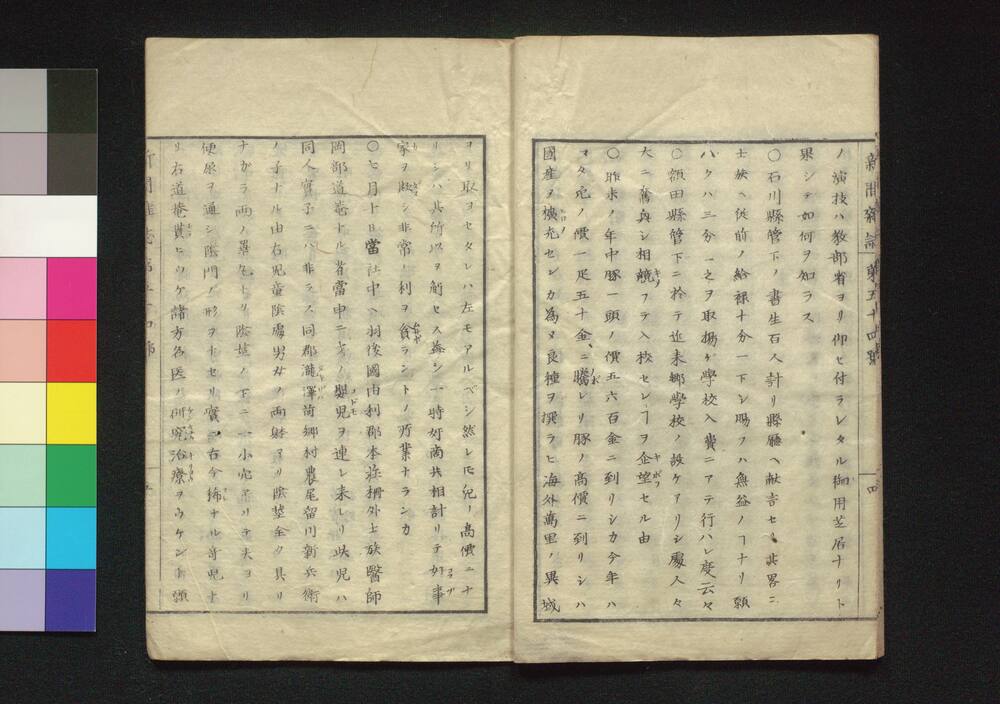 新聞雜誌 第五十四號 四
ノ演技ハ教部省ヨリ仰セ付ラレタル御用芝居ナリト
果シテ如何ヲ知ラス
〇石川縣管下ノ書生百人計リ縣廳ヘ献言セシ其畧ニ
士族ヘ従前ノ給禄十分一下シ賜フハ無益ノヿナリ願
ハクハ三分一之ヲ取揚ケ學校入費ニアテ行ハレ度云々
〇額田縣管下ニ於テ近来郷學校ノ設ケアリシ處人々
大ニ奮奐シ相競フテ入校セレヿヲ企望セル由
〇昨未ノ年中豚一頭ノ價五六百金ニ到リシカ今年ハ
マタ兎ノ價一疋五十金ニ騰レリ豚ノ高價ニ到リシハ
國産ヲ擴充センカ為メ良種ヲ撰ラヒ海外萬里ノ異域
ヨリ取ヨセタレハ左モアルベシ然レ𪜈兎ノ高價ニナ
リシハ其所以ヲ解セス蓋シ一時奸商共相計リテ好事
家ヲ欺シ非常ノ利ヲ貪ラントノ所業ナランカ
〇七月十日當社中ヘ羽後國由利郡本莊柵外士族醫師
岡部道菴ナル者當申二才ノ嬰児ヲ連レ来レリ此児ハ
同人實子ニハ非ラス同郡瀧澤前郷村農尾留川新兵衛
ノ子ナル由右児童陰處男女ノ両躰アリ陰莖全ク具リ
ナガラ両ノ睪丸ナク陰莖ノ下ニ一小穴アリテ夫ヨリ
便尿ヲ通シ陰門ノ形ヲナセリ實ニ古今稀ナル奇児ナ
リ右道菴貰ヒウケ諸方名医ノ研究治療ヲウケント願